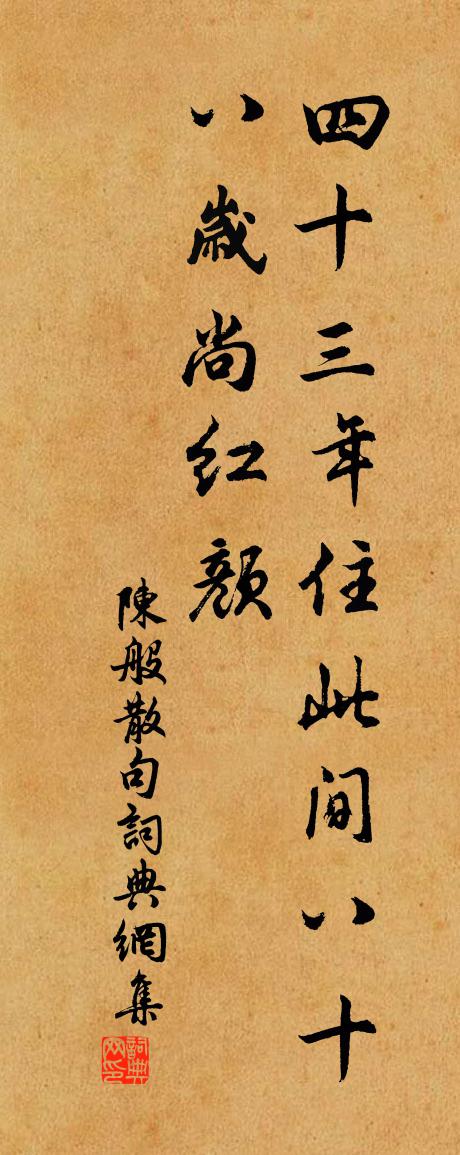 四十三年住此间八十
八歲尚红顏
陳般散句詞典網集
詞典网印